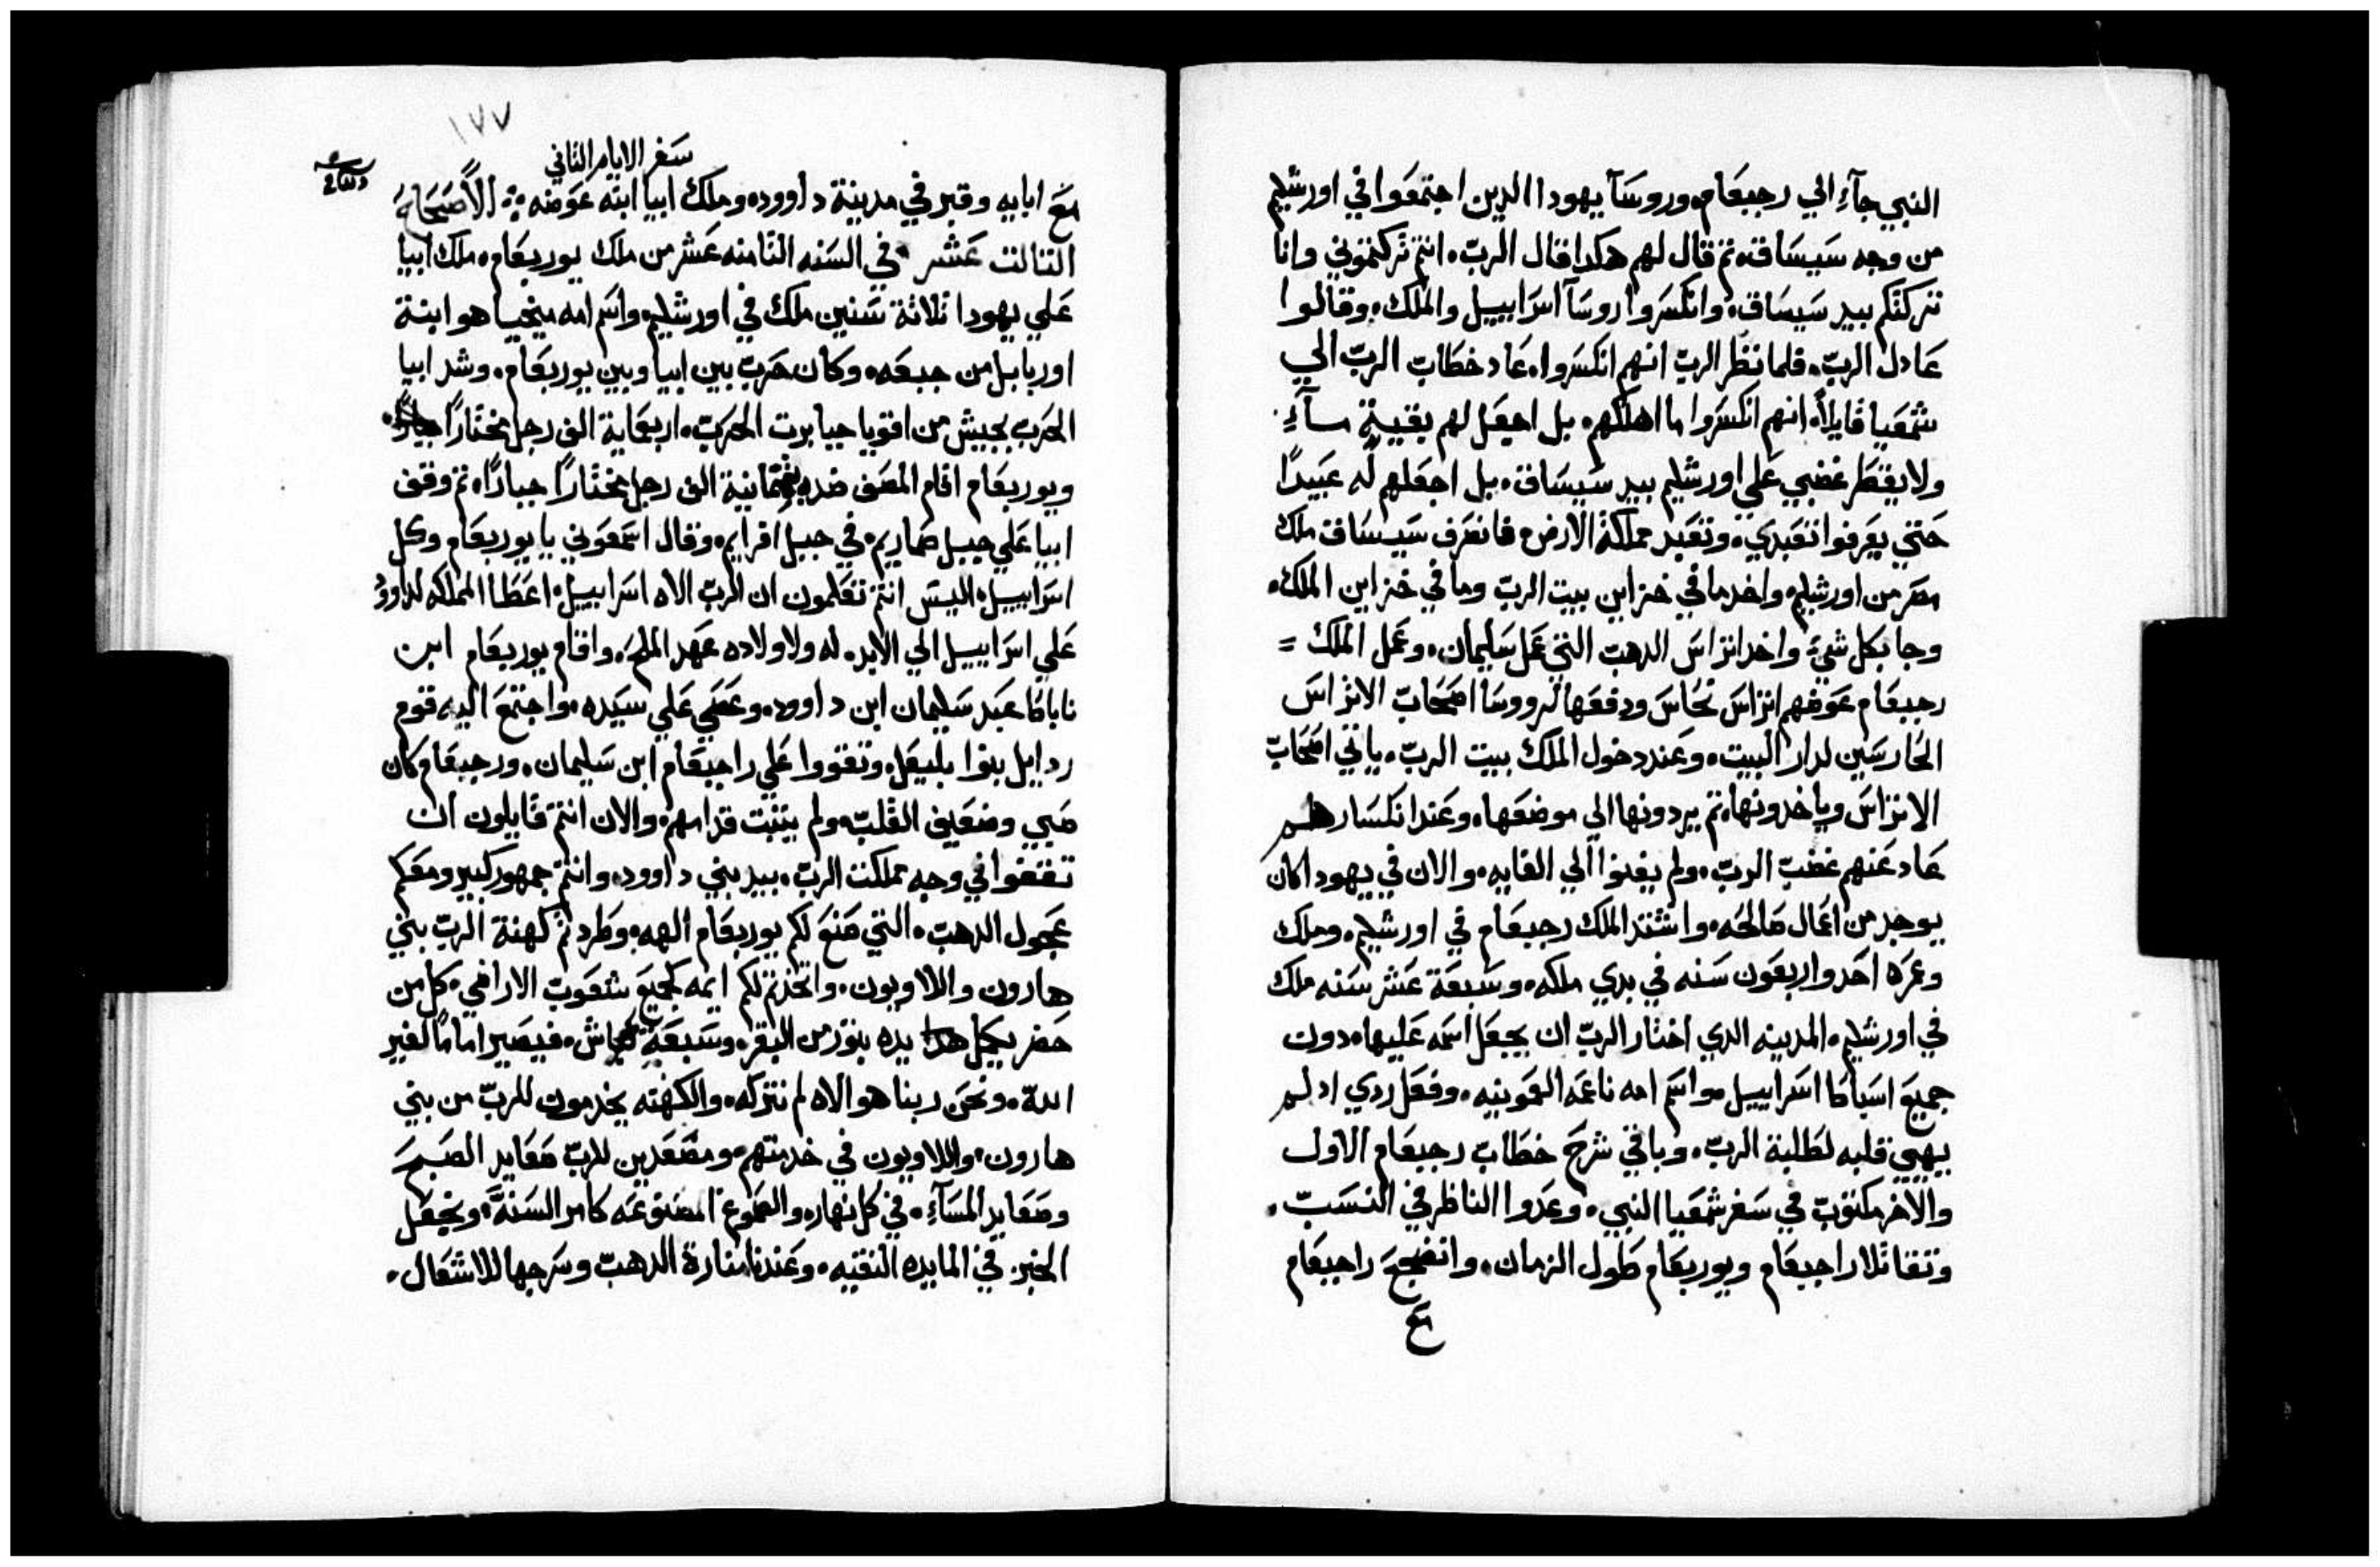 النبي جآء الي رجبعام. وروسآ يهودا الدين اجتمعوا في اورشليم
من وجه سيساق. تم قال لهم هكدا قال الرب. انتم تركتموني وانا
تركتكم بيد سيساق. وانكسروا روسآ اسراييل والملك. وقالوا
عادل الرب. فلما نظر الرب انهم انكسروا. عاد خطاب الرب الي
شمعيا قايلاً. انهم انكسروا ما اهلكهم. بل اجعل لهم بقية
ولا يقطر غضبي علي اورشليم بيد سيساق. بل اجعلهم له عبيدًا
حتي يعرفوا تعبدي. وتعبد مملكة الارض. فانصرف سيساق ملك
مصر من اورشليم. واخد ما في خزاين بيت الرب وما في خزاين الملك.
وجا بكل شيء واخد اتراس الدهب التي عمل سليمان. وعمل الملك =
رجبعام عوضهم اتراس نحاس ودفعها لروسا اصحاب الاتراس
الحارسين لدار البيت. وعند دخول الملك بيت الرب. ياتي اصحاب
الاتراس وياخدونها. تم يردونها الي موضعها. وعند انكسارهم
عاد عنهم غضب الرب. ولم يفنوا الي الغايه. والان في يهودا كان
يوجد من اعمال صالحه. واشتد الملك رجبعام في اورشليم. وملك
وعمره احد واربعون سنه في بدي ملكه. وسبعة عشر سنه ملك
في اورشليم. المدينه الدي اختار الرب ان يجعل اسمه عليها. دون
جميع اسباطا اسراييل. واسم امه ناعمه العمونيه. وفعل ردي اد لم
يهيي قلبه لطلبة الرب. وباقي شرح خطاب رجبعام الاول
والاخر مكتوب في سفر شمعيا النبي. وعدوا الناظر في النسب.
وتقاتلا راجبعام ويوربعام طول الزمان. وانضجع راجبعام
مع
١٧٧
سفر الايام التاني
مع ابايه وقبر في مدينة داوود. وملك ابيا ابنه عوضه. الأصحاح
التالت عشر في السنه التامنه عشر من ملك يوربعام. ملك ابيا
علي يهودا تلاتة سنين ملك في اورشليم. واسم امه ميخيا هو ابنة
اوريابل من جبعه. وكان حرب بين ابيا وبين يوربعام. وشد ابيا
الحرب بجيش من اقويا جبابرت الحرب. اربعماية الف رجل مختارًا جبارًا.
ويوربعام اقام المصف ضده بتمانية الف رجل مختارًا جبارًا. تم وقف
ابيا علي جبل صماريم. في جبل افرايم. وقال اسمعوني يا يوربعام وكل
اسراييل. اليس انتم تعلمون ان الرب الاه اسراييل. اعطا المملكه لداوود
علي اسراييل الي الابد. له ولاولاده عهد الملح. واقام يوربعام ابن
ناباطا عبد سليمان ابن داوود. وعصي علي سيده. واجتمع اليه قوم
ردايل بنوا بليعل. وتقووا علي راجبعام ابن سليمان. ورجبعام كان
صبي وضعيف القلب. ولم يتبت قدامهم. والان انتم قايلون ان
تقفوا في وجه مملكت الرب. بيد بني داوود. وانتم جمهور كبير ومعكم
عجول الدهب. التي صنع لكم يوربعام الهه. وطردتم كهنة الرب بني
هارون واللاويون. واتخدتم لكم ايمه كجميع شعوب الاراضي. كل من
حضر يكمل يده بتور من البقر. وسبعة كباش. فيصير امامًا لغير
الله. ونحن ربنا هو الاه لم نتركه. والكهنته يخدمون للرب من بني
هارون. واللاويون في خدمتهم. ومصعدين للرب صعايد الصبح
وصعايد المسآء. في كل نهار. والصموغ المصنوعه كامر السنة. ونجعل
الخبز في المايده النقيه. وعندنا منارة الدهب وسرجها للاشتعال.